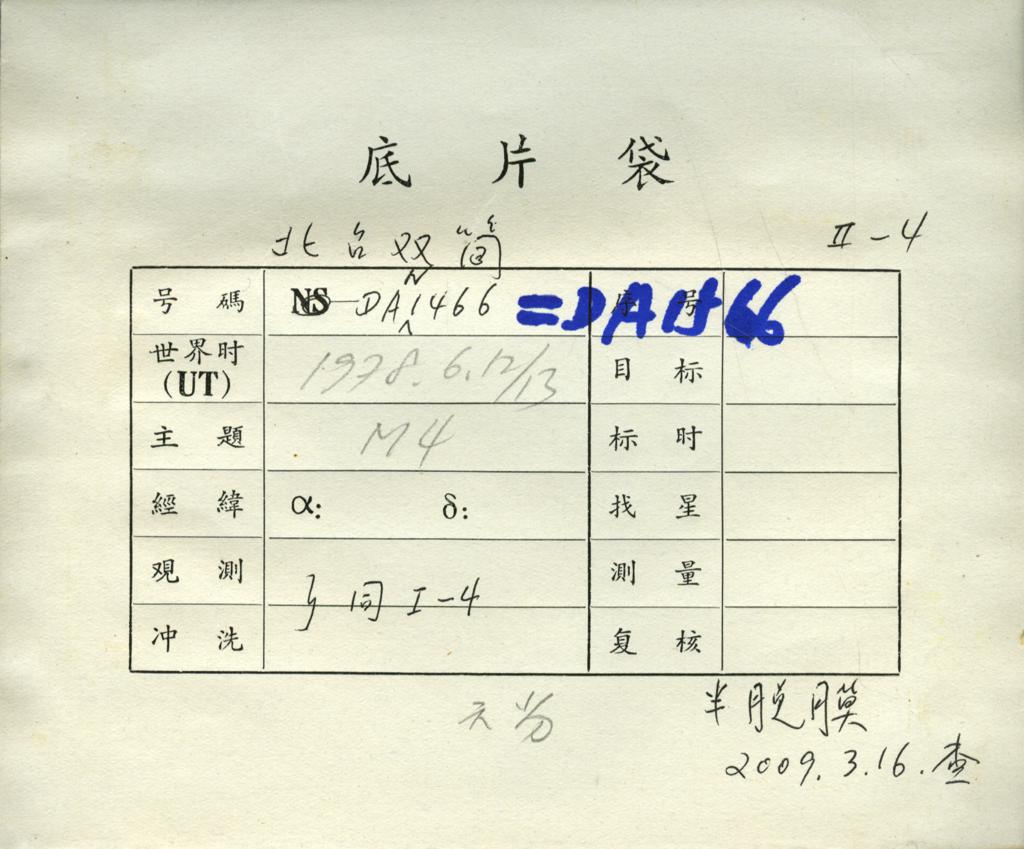 底 片 袋
北台双筒
II-4
号 碼 NS DAN1466 =DA1466 序 号
世界时 (UT) 1978.6.12/13 目 标
主 題 M4 标 时
經 緯 α: δ: 找 星
观 測 測 量
同 I-4
冲 洗 复 核
半脱膜
2009.3.16.查